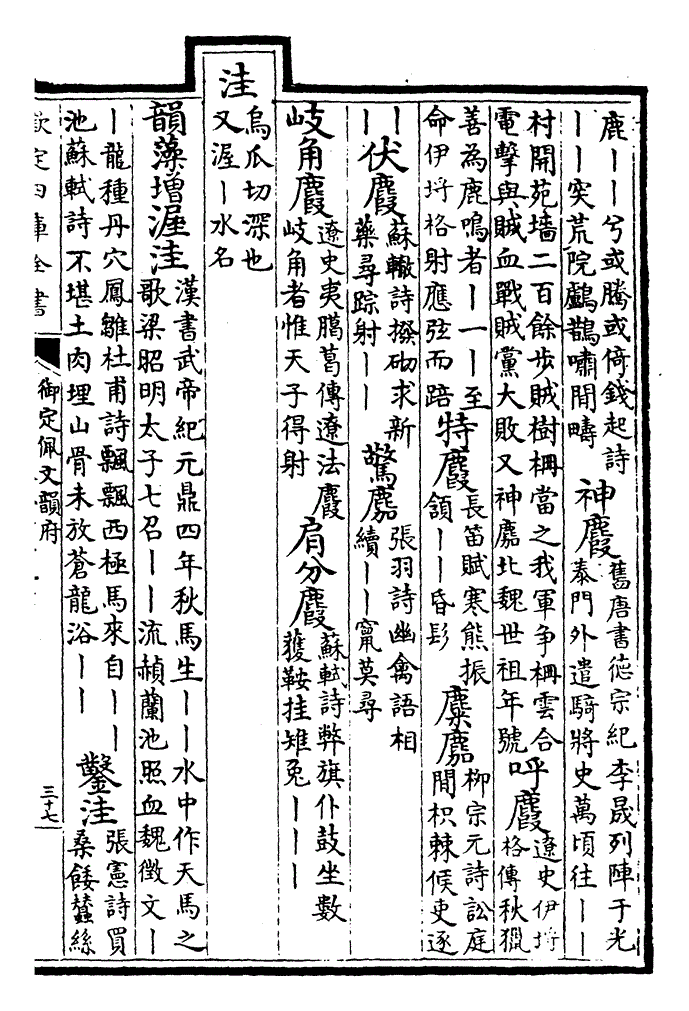 鹿丨丨兮或騰或倚錢起詩
丨丨突荒院鸕鷀嘯間疇
神麚
舊唐書德宗紀李晟列陣于光
泰門外遣騎將史萬頃往丨丨
村開苑墻二百餘步賊樹柵當之我軍争柵雲合
電擊與賊血戰賊黨大敗又神麚北魏世祖年號
呼麚
遼史伊埒
格傳秋獵
善為鹿鳴者丨一丨至
命伊埒格射應弦而踣
特麚
長笛賦寒熊振
頷丨丨昏髟
麋麚
柳宗元詩訟庭
間枳棘候吏逐
丨
丨
伏麚
蘇轍詩撥砌求新
藥尋踪射丨丨
驚麚
張羽詩幽禽語相
續丨丨竄莫尋
岐角麚
遼史夷臈葛傳遼法麚
岐角者惟天子得射
肩分麚
蘇軾詩弊旗仆鼓坐數
獲鞍挂雉兔丨丨丨
洼
烏瓜切深也
又渥丨水名
韻藻增渥洼
漢書武帝紀元鼎四年秋馬生丨丨水中作天馬之
歌梁昭明太子七召丨丨流赬蘭池照血魏徵文丨
丨龍種丹穴鳳雛杜甫詩飄飄西極馬來自丨丨
池蘇軾詩不堪土肉埋山骨未放蒼龍浴丨丨
鑿洼
張憲詩買
桑餧蠶絲
欽定四庫全書
御定佩文韻府
三十七